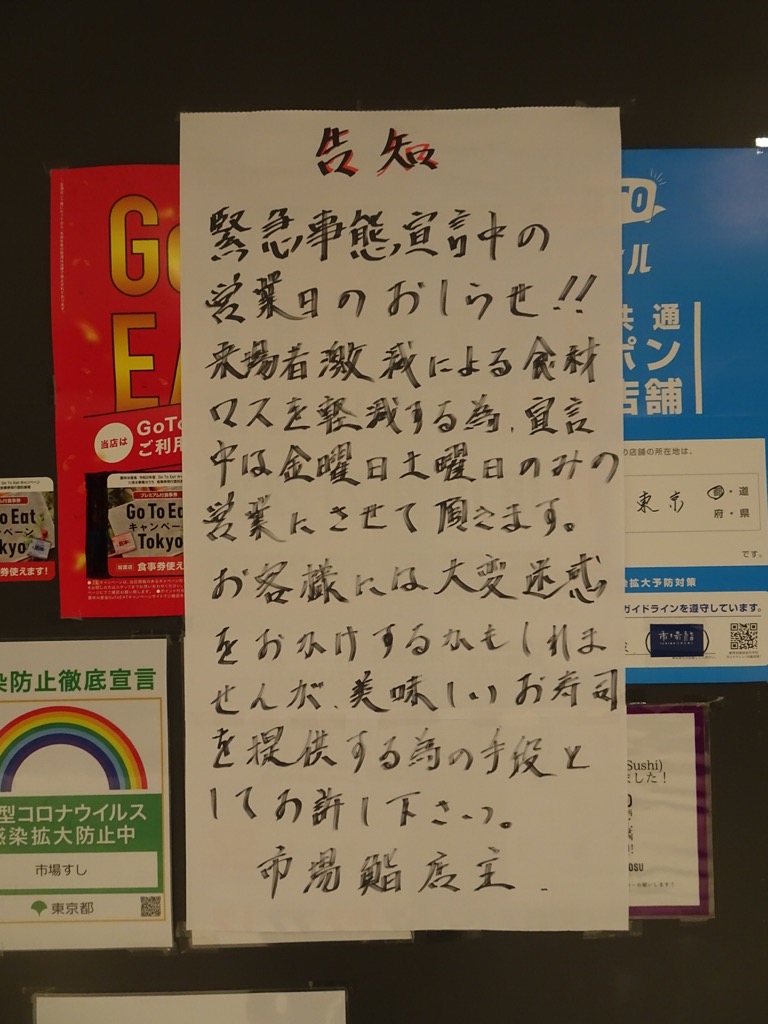 告知
緊急事態宣言中の
営業日のおしらせ!!
来場者激減による食材
ロスを軽減する為、宣言
中は金曜日土曜日のみの
営業にさせて頂きます。
お客様には大変迷惑
をおかけするかもしれま
せんが、美味しいお寿司
を提供する為の手段と
してお許し下さい。
市場鮨店主.
Go
EA
当店は
GoTo
ご利用
プレミアム付食事券
Go To Eat
キャンペーン
Tokyo
加盟店 食事券使えます!
o Eat
ペーン
kyo
券使えます!
TO
ル
共通
ポン
店舗
の店舗の所在地は、
東京
都・道
府・県
です。
拡大予防対策
ガイドラインを遵守しています。
染防止徹底宣言
型コロナウイルス
感染拡大防止中
市場すし
東京都
Sushi)
ました!
OSU